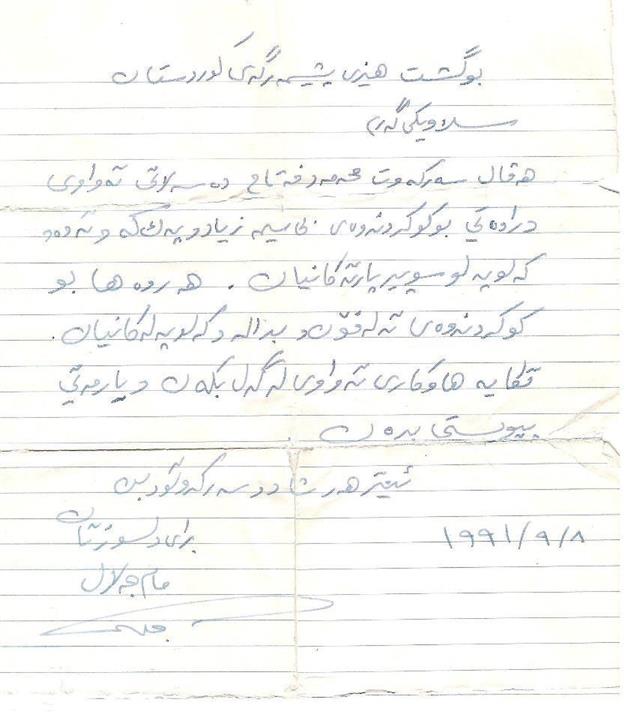 بوگشت هیزی پیشمەرگەی کوردستان
سلاویکی گەرم
هەڤال سەرکەوت محمەد فتاح دەسەلاتی تەواوی
دراوەتی بوکوکردنەوەی بی سیم زیاد و پەک کەوتەوە
کەلوپەلو سوپیر پارتەکانیان . هەروەها بو
کوکردنەوەی تەلەفۆن و بدالە و کەلوپەلەکانیان .
تقایە هاوکاری تەواوی لەگەل بکەن و یارمەتی
پیویستی بدەن .
ئیتر هەر شاد و سەرکەوتوو بن
١٩٩١/٩/٨
برای دلسوزتان
مام جەلال